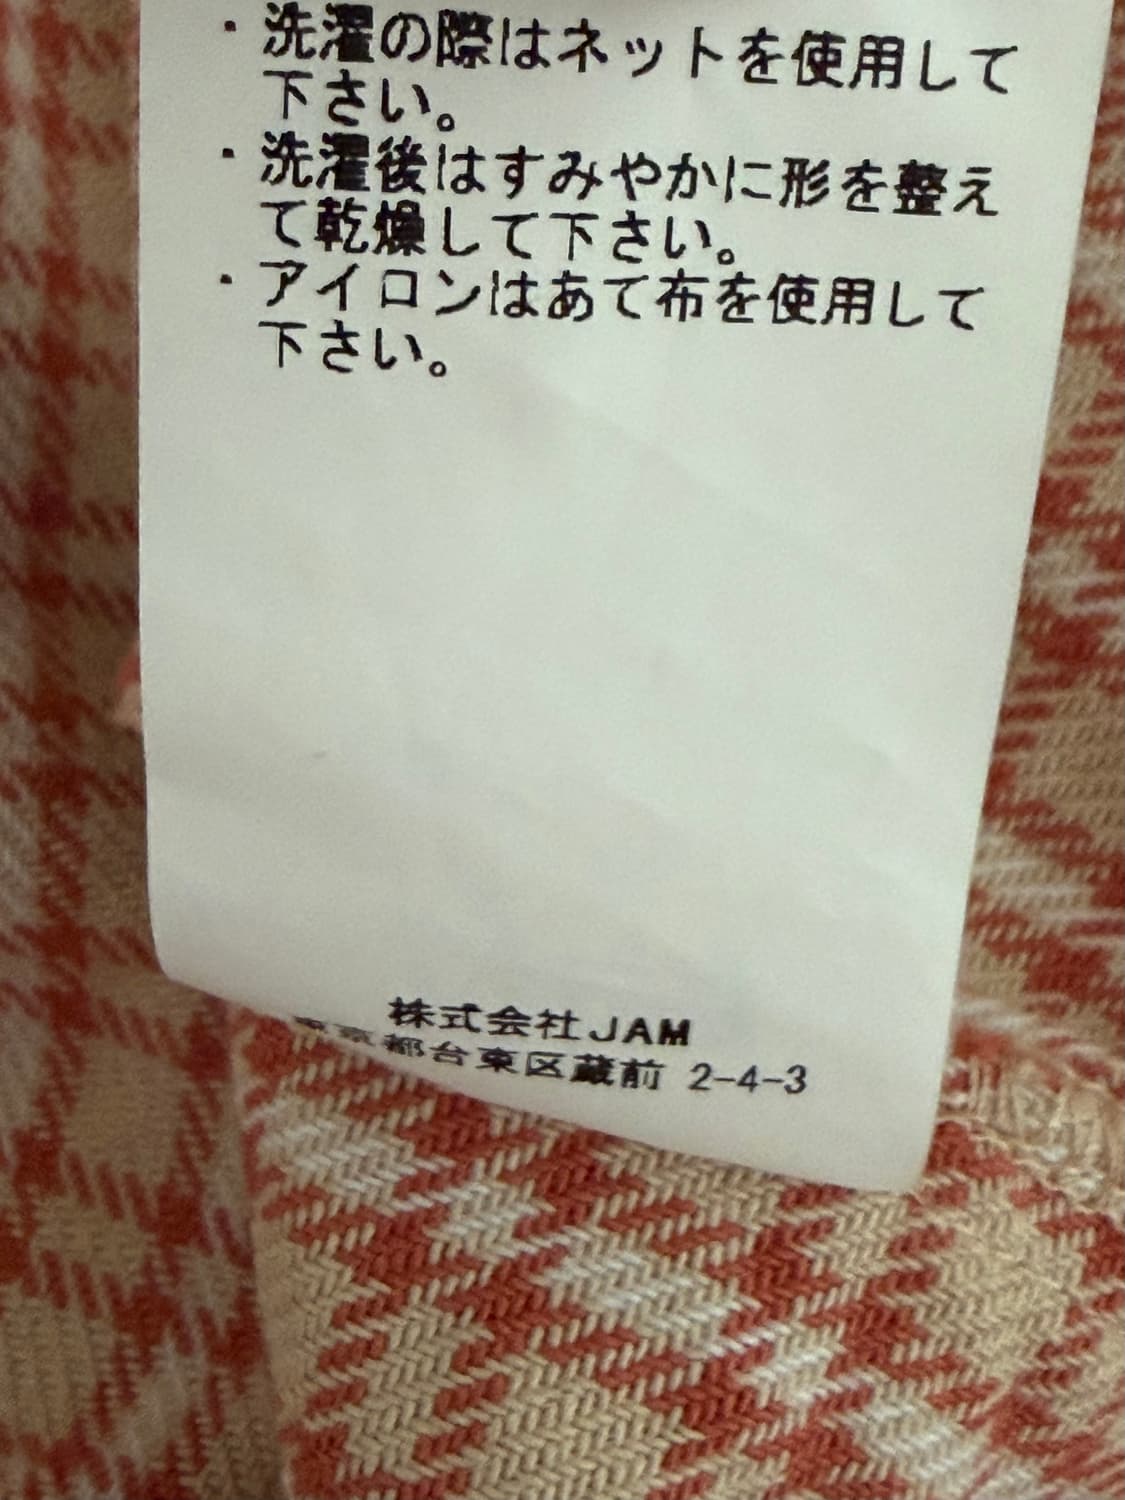 ・洗濯の際はネットを使用して
下さい。
・洗濯後はすみやかに形を整え
て乾燥して下さい。
・アイロンはあて布を使用して
下さい。
株式会社JAM
東京都台東区蔵前 2-4-3